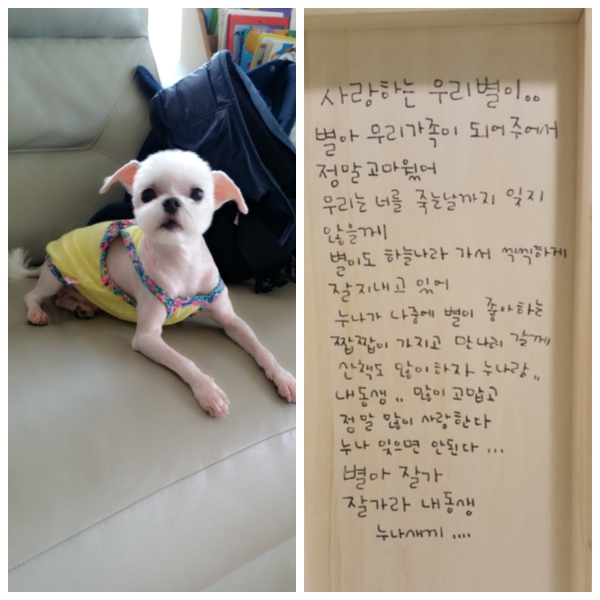 사랑하는 우리별이..
별아 우리가족이 되어주어서
정말고마웠어
우리는 너를 죽는날까지 잊지
않을께
별이도 하늘나라 가서 씩씩하게
잘지내고 있어
누나가 나중에 별이 좋아하는
짭짭이 가지고 만나러 갈께
산책도 많이하자 누나랑,,
내동생,, 많이 고맙고
정말 많이 사랑한다
누나 잊으면 안된다...
별아 잘가
잘가라 내동생
누나새끼....